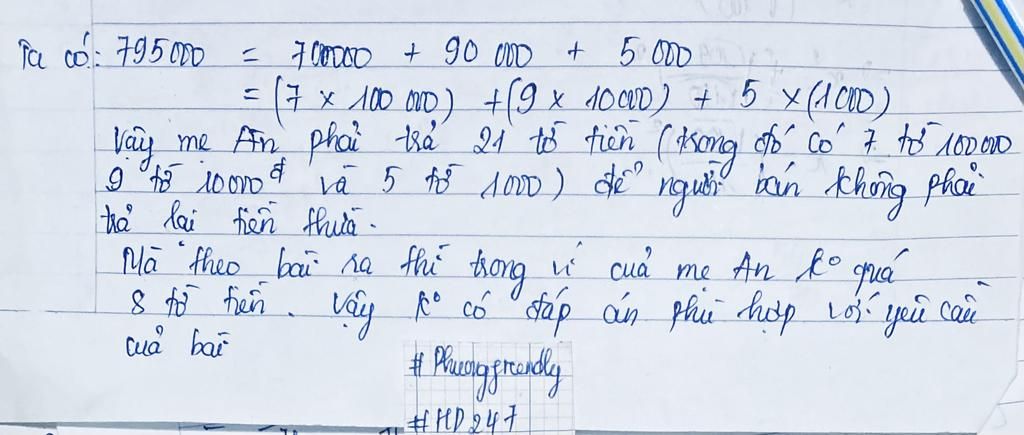 Ta có: 795000 = 700000 + 90 000 + 5 000
= (7 x 100 000) + (9 x 10000) + 5 x (1000)
Vậy mẹ An phải trả 21 tờ tiền (trong đó có 7 tờ 100000
9 tờ 10000đ và 5 tờ 1000) để người bán không phải
trả lại tiền thừa.
Mà theo bài ra thì trong ví của mẹ An k° quá
8 tờ tiền. Vậy k° có đáp án phù hợp với yêu cầu
của bài
# Phuongfreendly
#HD247